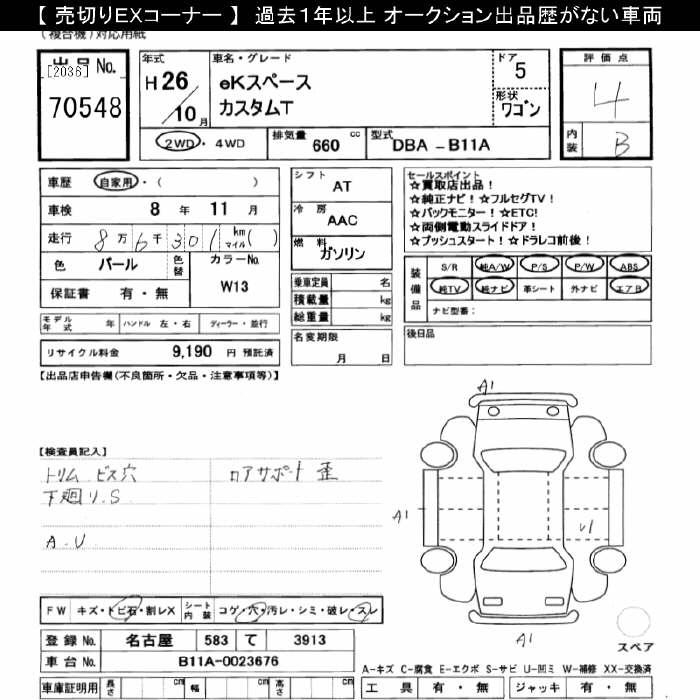 【 売切りEXコーナー 】 過去１年以上 オークション出品歴がない車両
（複合機）対応用紙
出品No.
[2036]
70548
年式
H 26/10月
車名・グレード
eKスペース
カスタムT
ドア
5
形状
ワゴン
評価点
4
内装
B
2WD・4WD
排気量 660 cc
型式 DBA －B11A
車歴 自家用・（ ）
車検 8 年 11 月
走行 8万6千301 km マイル( )
色 パール
色替
カラーNo.
W13
保証書 有・無
シフト AT
冷房 AAC
燃料 ガソリン
乗車定員 名
積載量 kg
総重量 kg
セールスポイント
☆買取店出品！
☆純正ナビ！☆フルセグTV！
☆バックモニター！☆ETC!
☆両側電動スライドドア！
☆プッシュスタート！☆ドラレコ前後！
装備品
S/R 純A/W P/S P/W ABS
純TV 純ナビ 革シート 外ナビ エアB
ナビ型番：
モデル年式 年 ハンドル 左・右 ディーラー・並行
名変期限
月 日
後日品
リサイクル料金 9,190 円 預託済
【出品店申告欄（不良箇所・欠品・注意事項等）】
【検査員記入】
トリム ビス穴 ロアサポート 歪
下廻り.S
A.U
A1
A1
U1
A1
スペア
FW キズ・トビ石・割レX シート内装 コゲ・穴・汚レ・シミ・破レ・スレ
登録No. 名古屋 583 て 3913
車台No. B11A-0023676
A－キズ C－腐食 E－エクボ S－サビ U－凹ミ W－補修 XX－交換済
車庫証明用 長さ cm 幅 cm 高さ cm
工具 有・無 ジャッキ 有・無